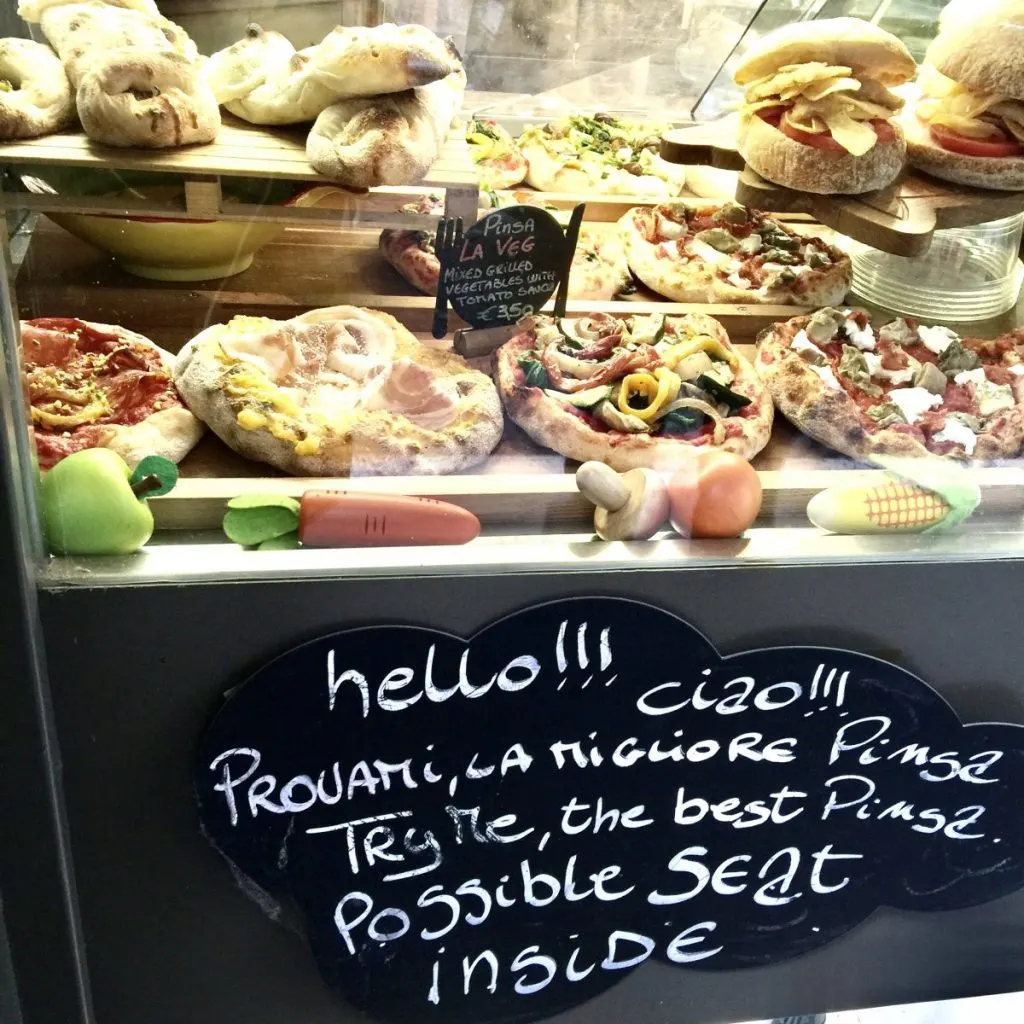 Pinsa
LA VEG
MIXED GRILLED
VEGETABLES WITH
TOMATO SAUCE
€3,50
hello!!! ciao!!!
PROVAMI, LA MIGLIORE Pinsa
TRY Me, the best Pinsa.
Possible SEat
inSiDE